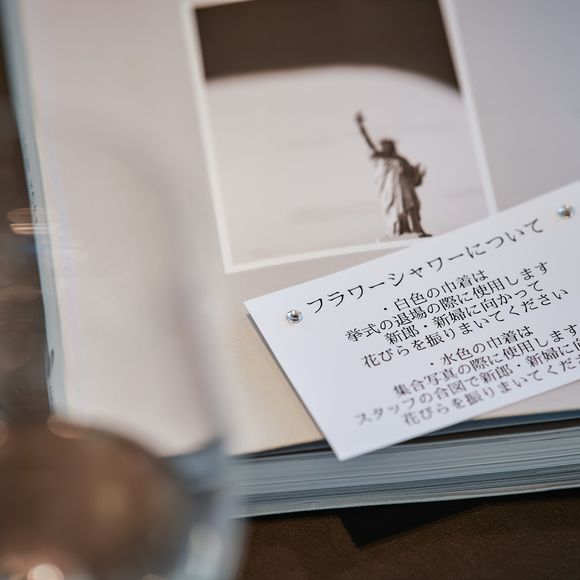 フラワーシャワーについて
・白色の巾着は
挙式の退場の際に使用します
新郎・新婦に向かって
花びらを振りまいてください
・水色の巾着は
集合写真の際に使用します
スタッフの合図で新郎・新婦に向
花びらを振りまいてくだ